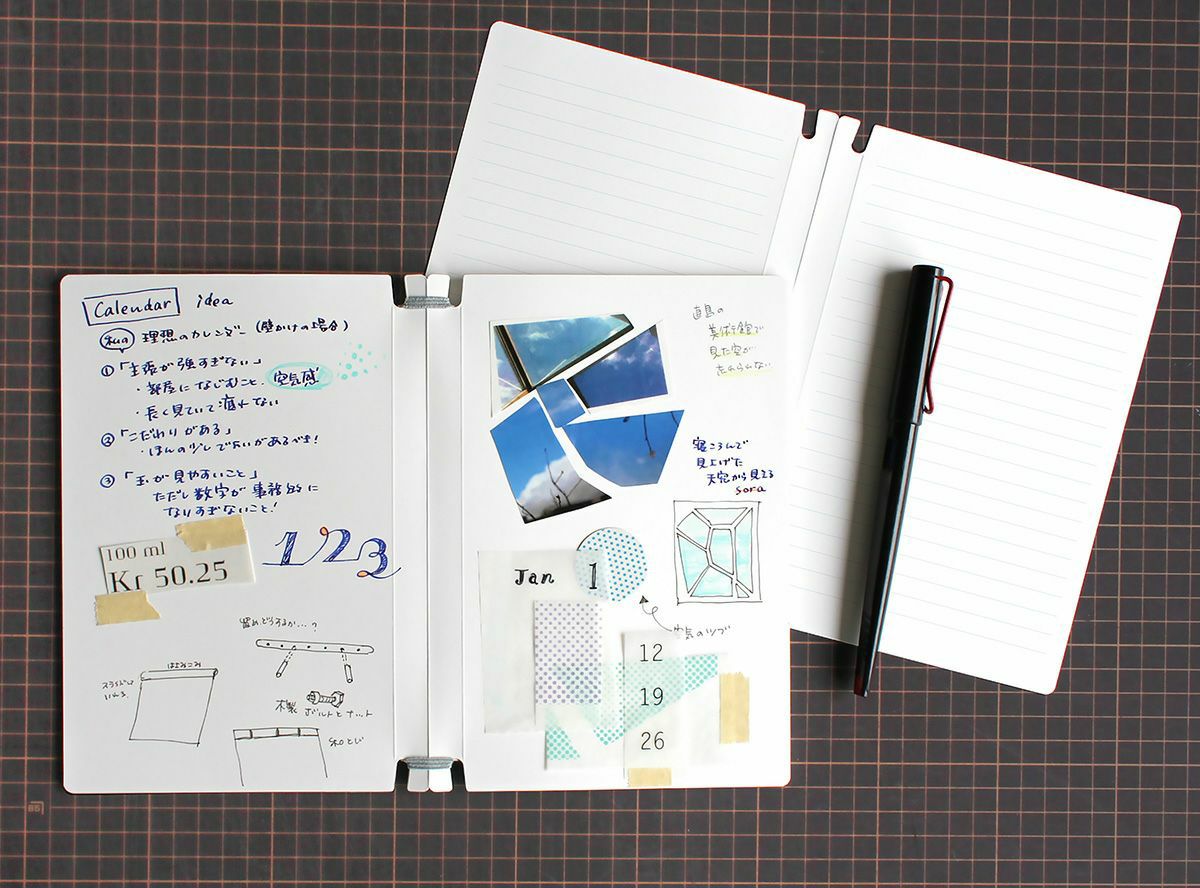 Calendar idea
私の 理想のカレンダー(壁かけの場合)
①「主張が強すぎない」
・部屋になじむこと. 空気感
・長く見ていて疲れない
②「こだわりがある」
・ほんの少しでいいがあるべき!
③「玉が見やすいこと」
ただし数字が事務的に
なりすぎないこと!
100 ml
Kr 50.25
123
留めどうするか…?
はさみこみ
スライドして
いれる
木製 ボルトとナット
和とじ
直島の
美術館で
見た空が
忘れられない
寝ころんで
見上げた
天窓から見てる
sora
Jan 1
空気のツブ
12
19
26
B5